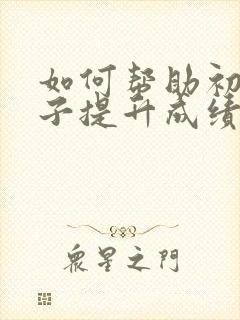 如何帮助初
子提升成绩
衆星之門